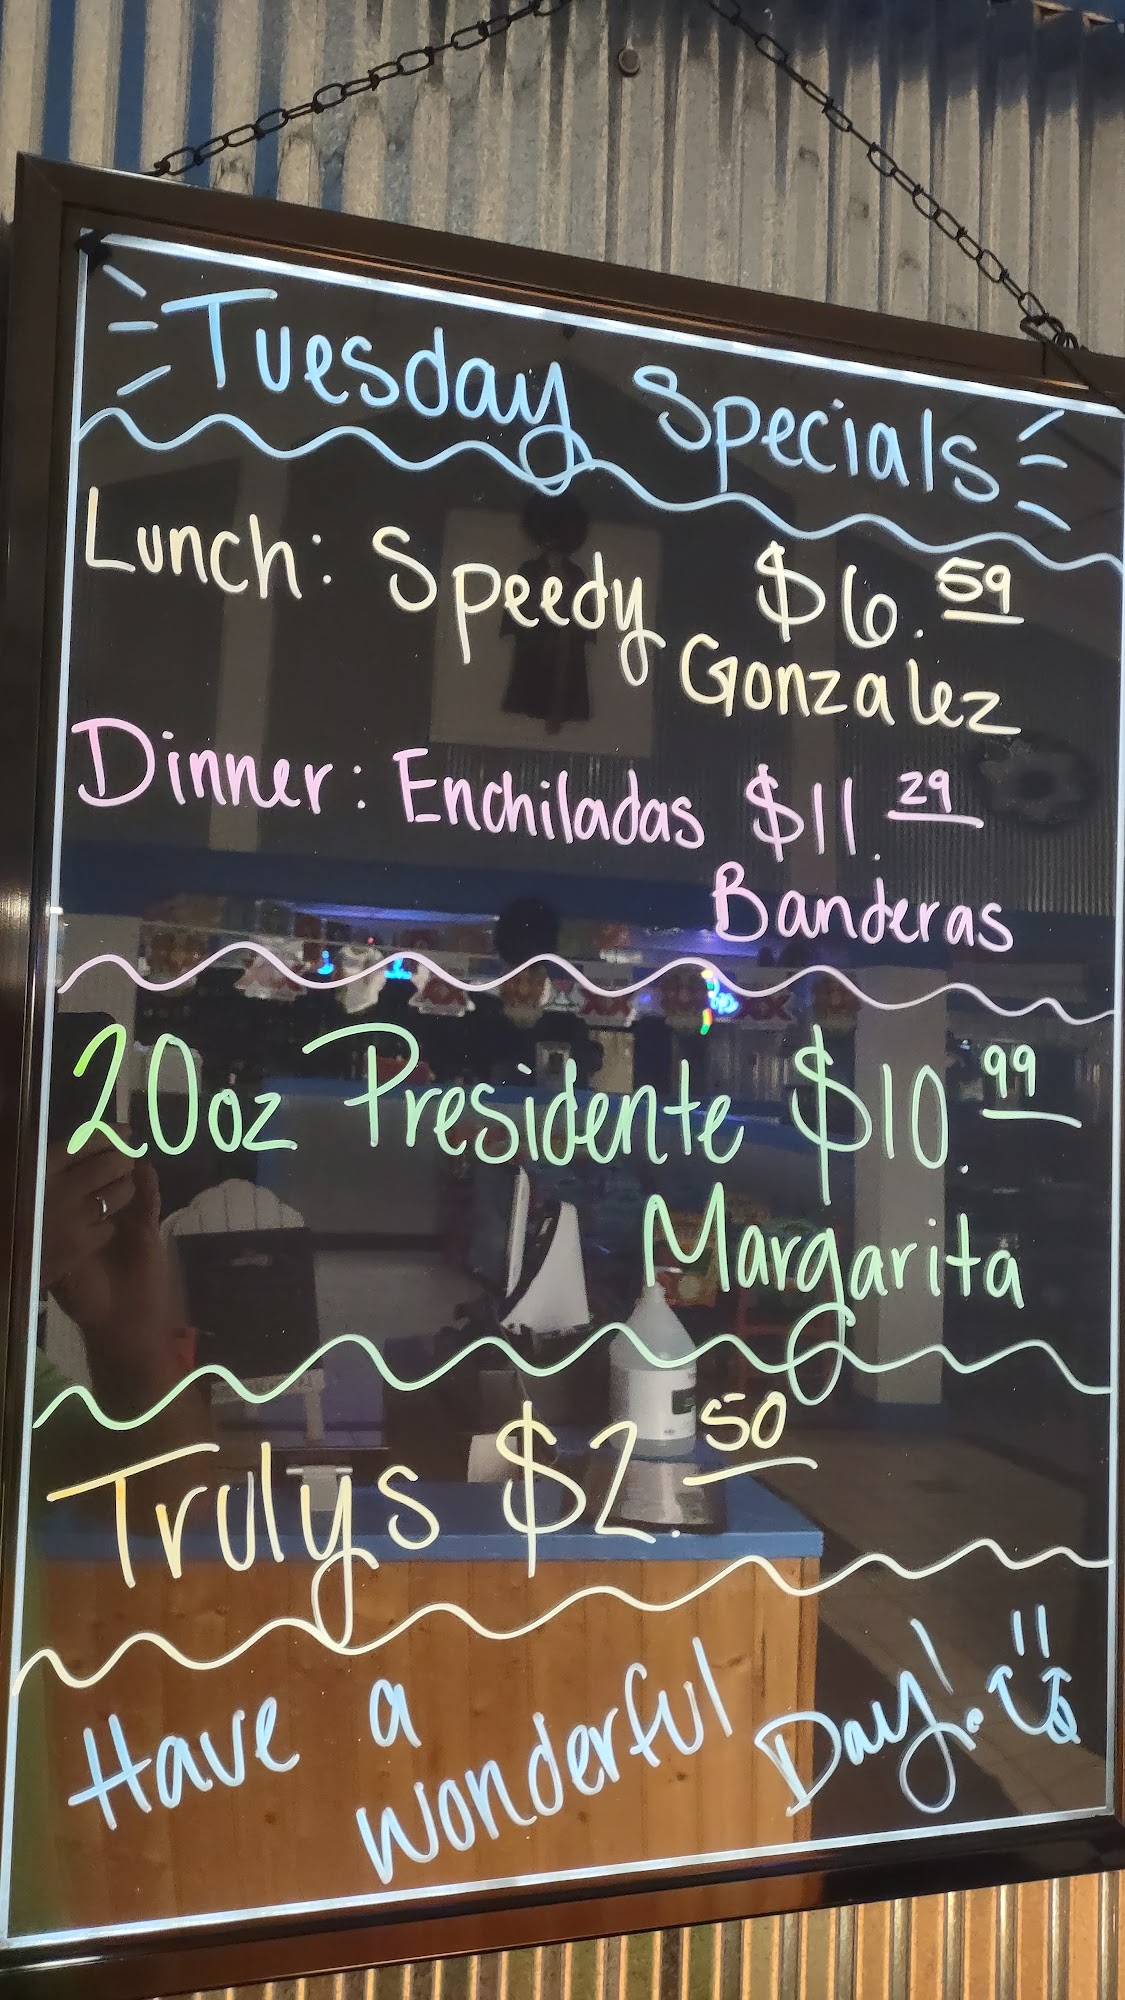 Tuesday Specials
Lunch: Speedy $6.59
Gonzalez
Dinner: Enchiladas $11.29
Banderas
20oz Presidente $10.99
Margarita
Trulys $2.50
Have a
wonderful Day!